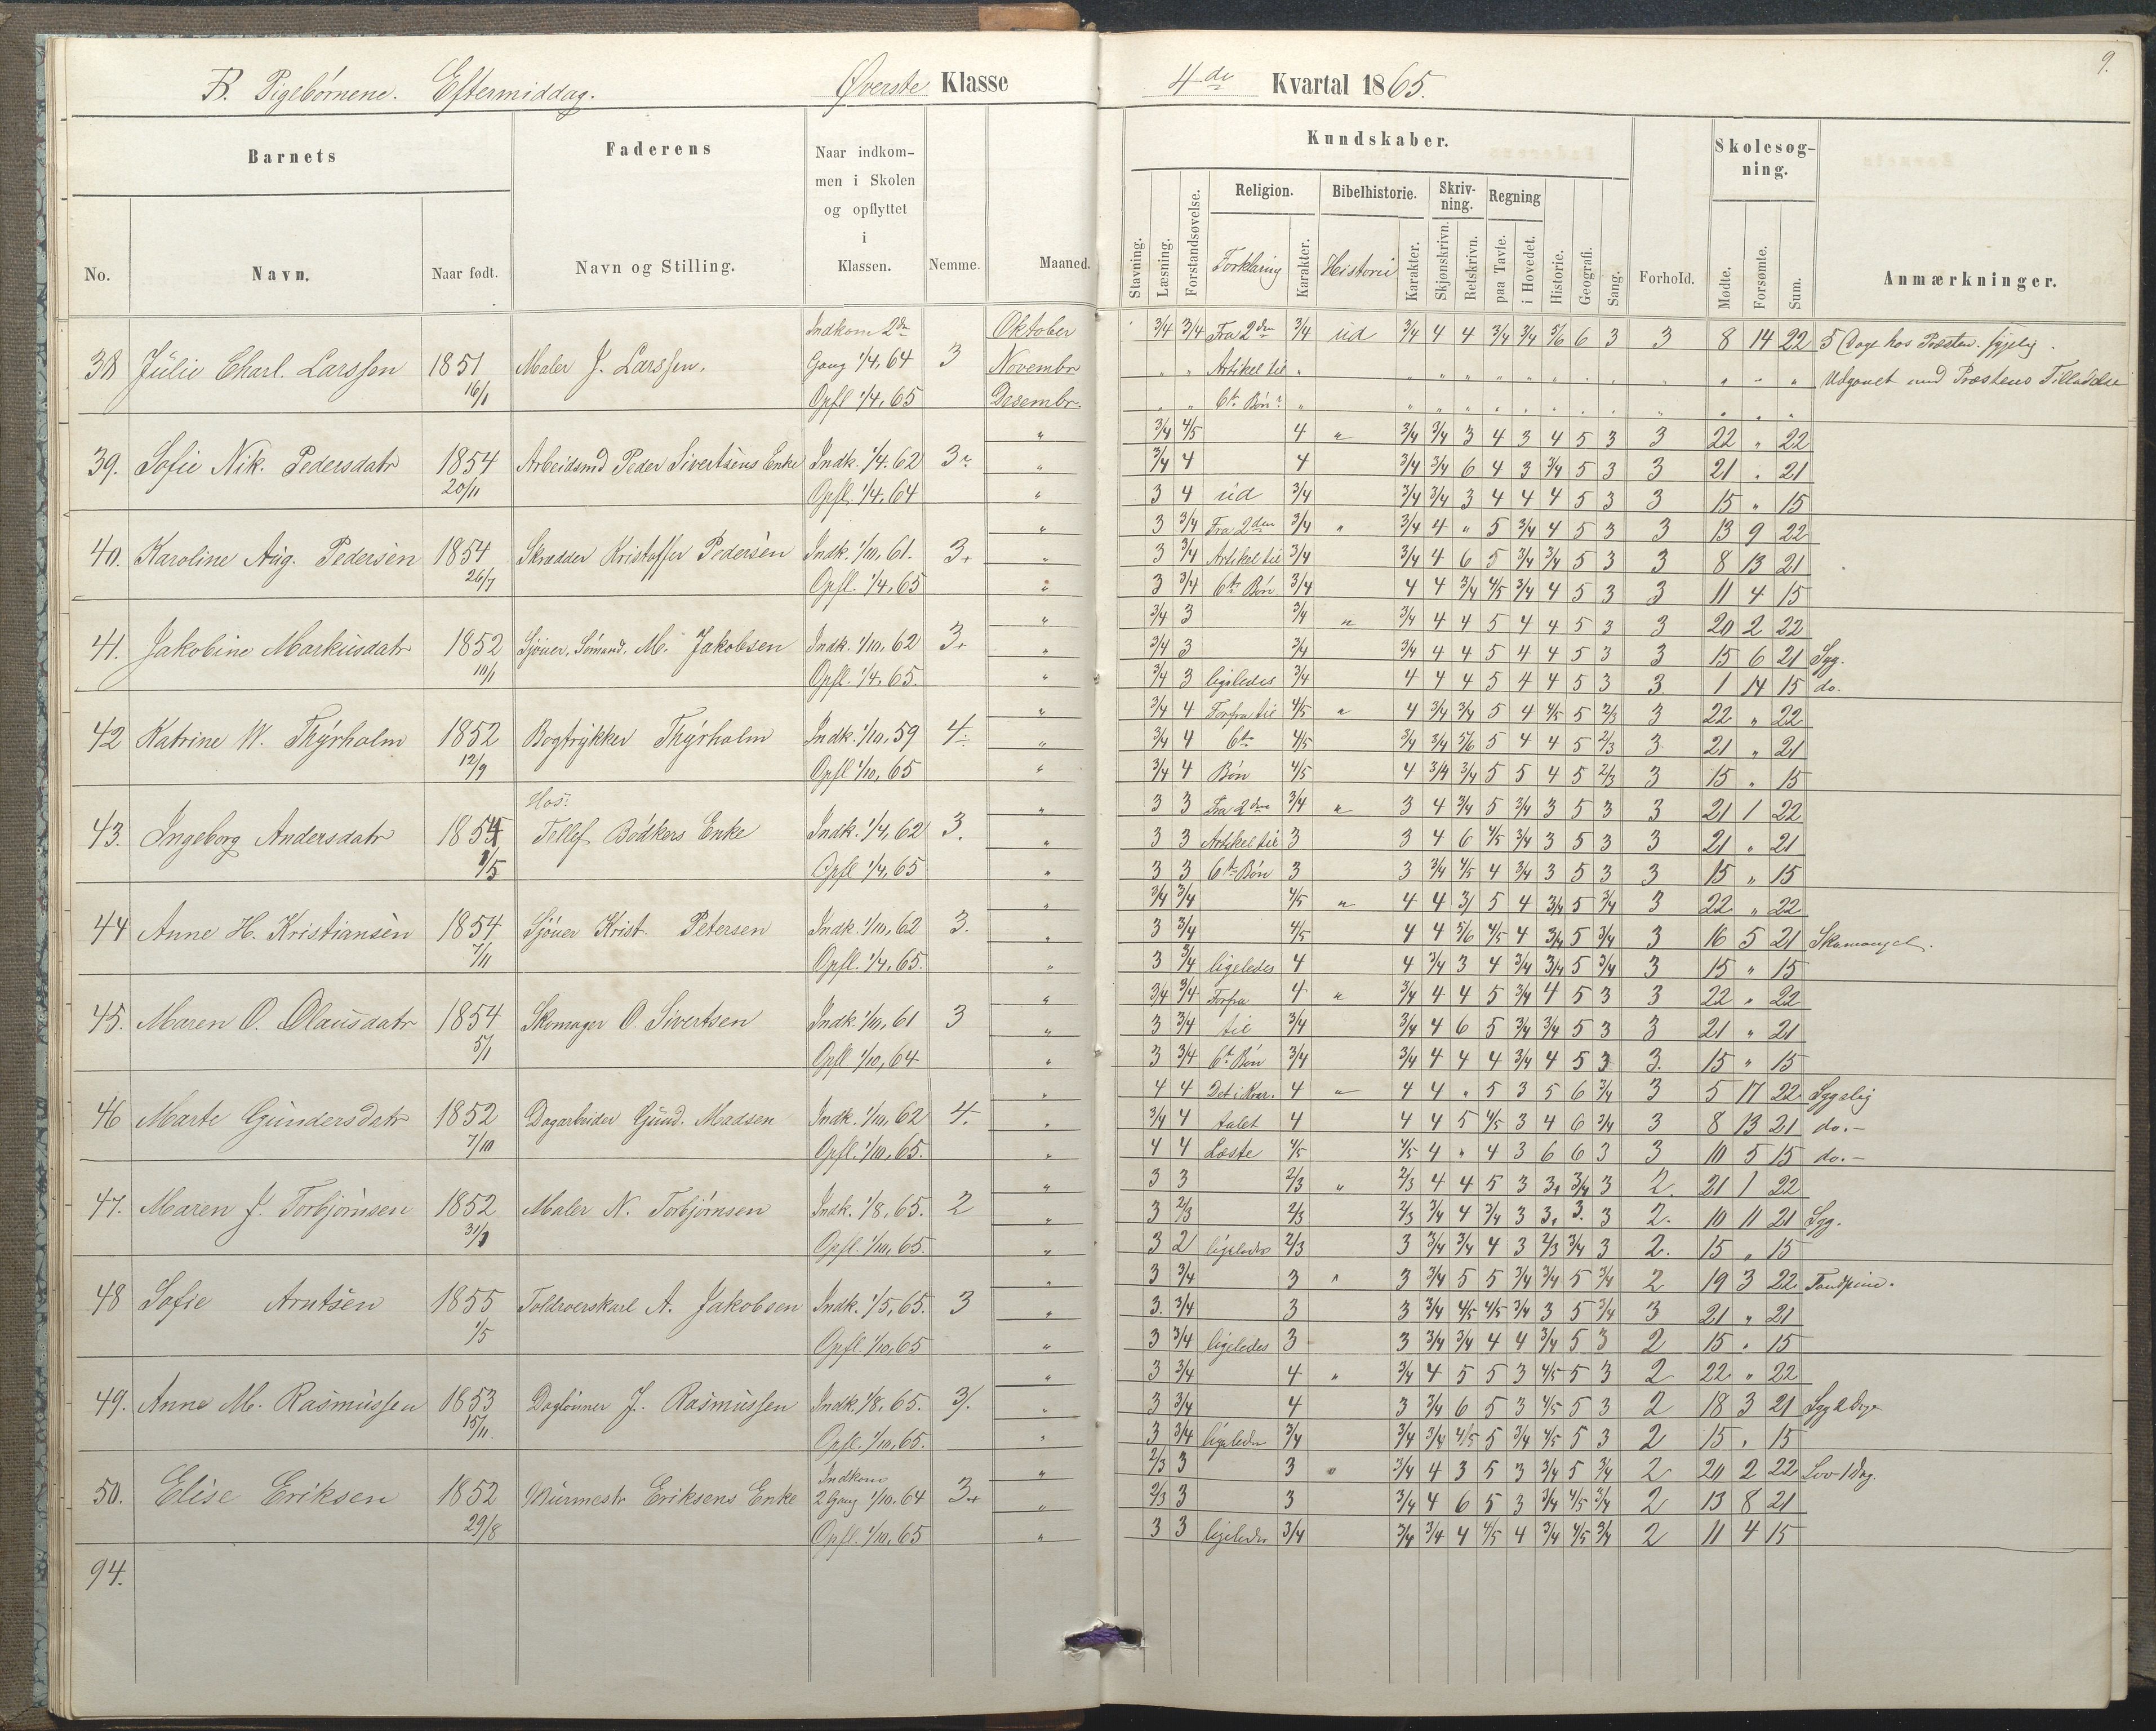 B. Pigebørnene. Eftermiddag. Øverste Klasse
4de Kvartal 1865.
9.
Barnets
Faderens
Naar indkommen i Skolen og opflyttet i Klassen.
Nemme.
Maaned.
No.
Navn.
Naar født.
Navn og Stilling.
Kundskaber.
Stavning.
Læsning.
Forstandsøvelse.
Religion.
Forklaring
Karakter.
Bibelhistorie.
Historie
Karakter.
Skrivning.
Skjønskrivn.
Retskrivn.
Regning
paa Tavle.
i Hovedet.
Historie.
Geografi.
Sang.
Forhold.
Skolesøgning.
Mødte.
Forsømte.
Sum.
Anmærkninger.
Indkom 2den Oktober 3/4 3/4 Fra 2den 3/4 ud 3/4 4 4 3/4 3/4 5/6 6 3 3 8 14 22 5 Dage hos Præsten. sygelig.
38 Julie Charl. Larssen 1851 Maler J. Larssen. Gang 1/4, 64 3 Novembr " " Artikel til " Udgaaet med Præstens Tilladelse
16/1 Opfl 1/4, 65 Desembr. " " 6te Bøn "
" 3/4 4/5 4 " 3/4 3/4 3 4 3 4 5 3 3 22 " 22
39. Sofie Nik. Pedersdatr 1854 Arbeidsmd Peder Sivertsens Enke Indk. 1/4. 62 3 " 3/4 4 4 3/4 3/4 6 4 3 3/4 5 3 3 21 " 21
20/11 Opfl. 1/4, 64 " 3 4 ud 3/4 3/4 3/4 3 4 4 4 5 3 3 15 " 15
" 3 3/4 Fra 2den 3/4 " 3/4 4 " 5 3/4 4 5 3 3 13 9 22
40. Karoline Aug. Pedersen 1854 Skrædder Kristoffer Pedersen Indk. 1/10, 61. 3+ " 3 3/4 Artikel til 3/4 3/4 4 6 5 3/4 3/4 5 3 3 8 13 21
26/7 Opfl. 1/4, 65 " 3 3/4 6te Bøn 3/4 4 4 3/4 4/5 3/4 4 5 3 3 11 4 15
" 3/4 3 3/4 " 3/4 4 4 5 4 4 5 3 3 20 2 22
41. Jakobine Markusdatr 1852 Sjouer, Sømand. M. Jakobsen Indk. 1/10, 62 3+ " 3/4 3 3/4 3/4 4 4 5 4 4 5 3 3 15 6 21 Syg.
10/1 Opfl. 1/4, 65. " 3/4 3 ligeledes 3/4 4 4 4 5 4 4 5 3 3 1 14 15 do.
" 3/4 4 Forfra til 4/5 " 4 3/4 3/4 5 4 4/5 5 2/3 3 22 " 22
42 Katrine W. Thyrholm 1852 Bogtrykker Thyrholm Indk. 1/10, 59 4 " 3/4 4 6te 4/5 3/4 3/4 5/6 5 4 4 5 2/3 3 21 " 21
12/9 Opfl 1/10, 65 " 3/4 4 Bøn 4/5 4 3/4 3/4 5 5 4 5 2/3 3 15 " 15
Hos: " 3 3 Fra 2den 3/4 " 3 4 3/4 5 3/4 3 5 3 3 21 1 22
43. Ingeborg Andersdatr 1854 Tellef Bødkers Enke Indk. 1/4, 62 3. " 3 3 Artikel til 3 3 4 6 4/5 3/4 3 5 3 3 21 " 21
1/5 Opfl 1/4, 65 " 3 3 6te Bøn 3 3 3/4 4/5 4 3/4 3 5 3 3 15 " 15
" 3/4 3/4 4/5 " 4 4 3/ 5 4 3/4 5 3/4 3 22 " 22
44 Anne H. Kristiansen 1854 Sjouer Krist. Petersen Indk. 1/10, 62 3. " 3 3/4 4/5 4 4 5/6 4/5 4 3/4 5 3/4 3 16 5 21 Skomangel.
7/11 Opfl. 1/4, 65. " 3 3/4 ligeledes 4 4 3/4 3 4 3/4 3/4 5 3/4 3 15 " 15
" 3/4 3/4 Forfra 4 " 3/4 4 4 5 3/4 4 5 3 3 22 " 22
45. Maren O. Olausdatr 1854 Skomager O. Sivertsen Indk. 1/10, 61 3 " 3 3/4 til 3/4 3/4 4 6 5 3/4 3/4 5 3 3 21 " 21
5/1 Opfl 1/10, 64 " 3 3/4 6te Bøn 3/4 3/4 4 4 4 3/4 4 5 3 3. 15 " 15
" 4 4 Det i Kvar. 4 " 4 4 " 5 3 5 6 3/4 3 5 17 22 Sygelig
46 Marte Gundersdatr 1852 Dagarbeider Gund. Madsen Indk. 1/10, 62 4. " 3/4 4 talet 4 4 4 5 4/5 3 4 6 3/4 3 8 13 21 do.-
7/10 Opfl. 1/10, 65. " 4 4 Læste 4/5 4/5 4 " 4 3 6 6 3 3 10 5 15 do.-
" 3 3 2/3 " 2/3 4 4 5 3 3+ 3/4 3 2. 21 1 22
47. Maren J. Torbjørnsen 1852 Maler N. Torbjørnsen Indk. 1/8, 65. 2 " 3 2/3 2/3 2/3 3/4 4 3/4 3 3+ 3. 3 2. 10 11 21 Syg.
31/1 Opfl. 1/10, 65. " 3 2 ligeledes 2/3 3 3/4 3/4 4 3 2/3 3/4 3 2. 15 " 15
" 3 3/4 3 " 3 3/4 5 5 3/4 3/4 5 3/4 2 19 3 22 Tandpine.
48 Sofie Arntsen 1855 Toldroerskarl A. Jakobsen Indk. 1/5, 65. 3 " 3. 3/4 3 3 3/4 4/5 4/5 3/4 3 5 3/4 3 21 " 21
1/5 Opfl 1/10, 65 " 3 3/4 ligeledes 3 3 3/4 3/4 4 4 3/4 5 3 2 15 " 15
" 3 3/4 4 " 3/4 4 5 5 3 4/5 5 3 2 22 " 22
49. Anne M. Rasmussen 1853 Daglønner J. Rasmussen Indk. 1/8, 65. 3/. " 3 3/4 4 3 3/4 6 5 3 4/5 5 3 2 18 3 21 Syg 2 Dage
15/11. Opfl. 1/10, 65. " 3 3/4 ligeledes 3/4 3/4 3/4 4/5 5 3/4 4/5 5 3 2 15 " 15
Indkom " 2/3 3 3 " 3/4 4 3 5 3 3/4 5 3/4 2 20 2 22 Lov 1 Dag.
50. Elise Eriksen 1852 Murmestr Eriksens Enke 2 Gang 1/10. 64 3+ " 2/3 3 3 3/4 4 6 5 3 3/4 4/5 3/4 2 13 8 21
29/8 Opfl. 1/10, 65 " 3 3 ligeledes 3/4 3/4 3/4 4 4/5 4 3/4 4/5 3/4 2 11 4 15
94.